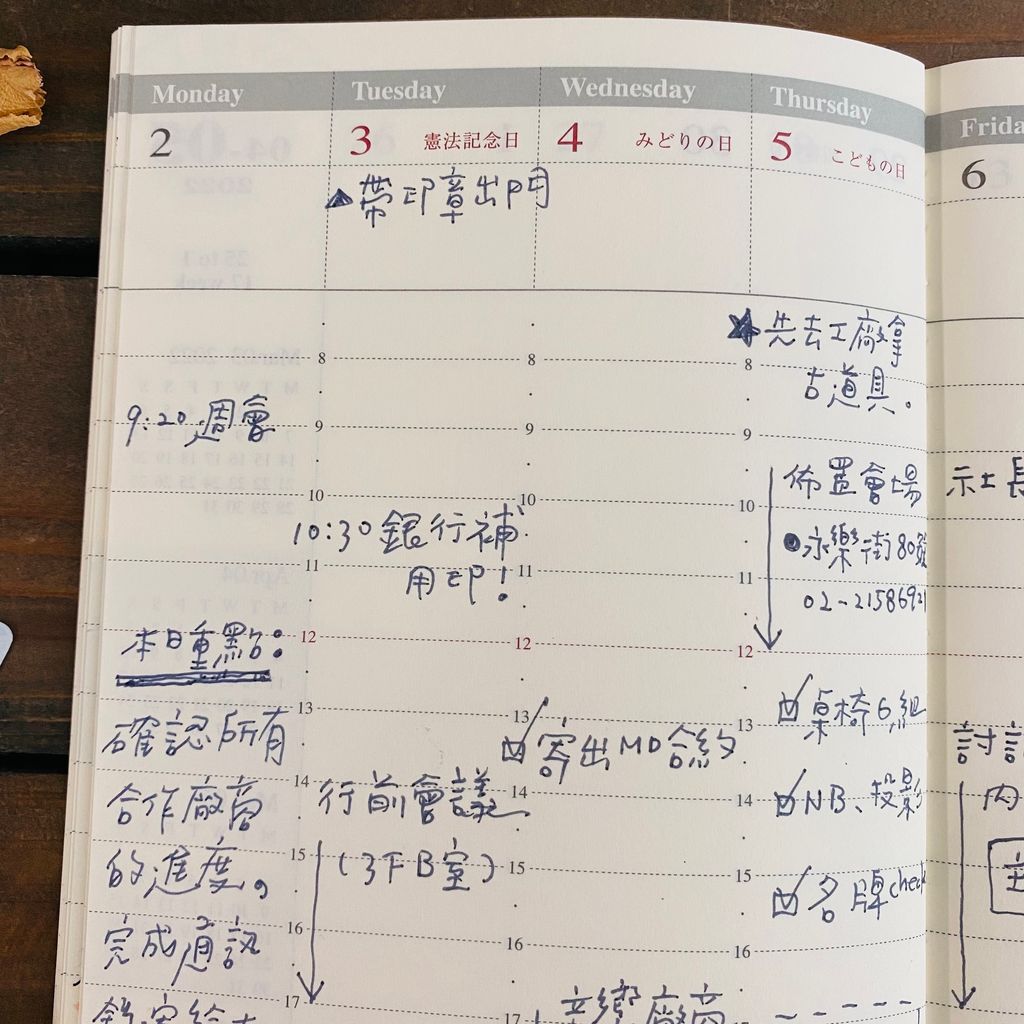 Monday
2
9:20 週會
本日重點:
確認所有
合作廠商
的進度。
完成通訊
Tuesday
3 憲法記念日
▲帶印章出門
8
9
10
10:30 銀行補
用印!
11
12
13
14
行前會議
(3F B室)
15
16
17
Wednesday
4 みどりの日
8
9
10
11
12
13
☑寄出MD合約
14
15
16
17
音響廠商
Thursday
5 こどもの日
★先去工廠拿
古道具。
8
9
10
佈置會場
●永樂街80號
11
02-2158692
12
☑桌椅6組
13
☑NB、投影
14
☑名牌check
15
16
Frida
6
社長
討論
內